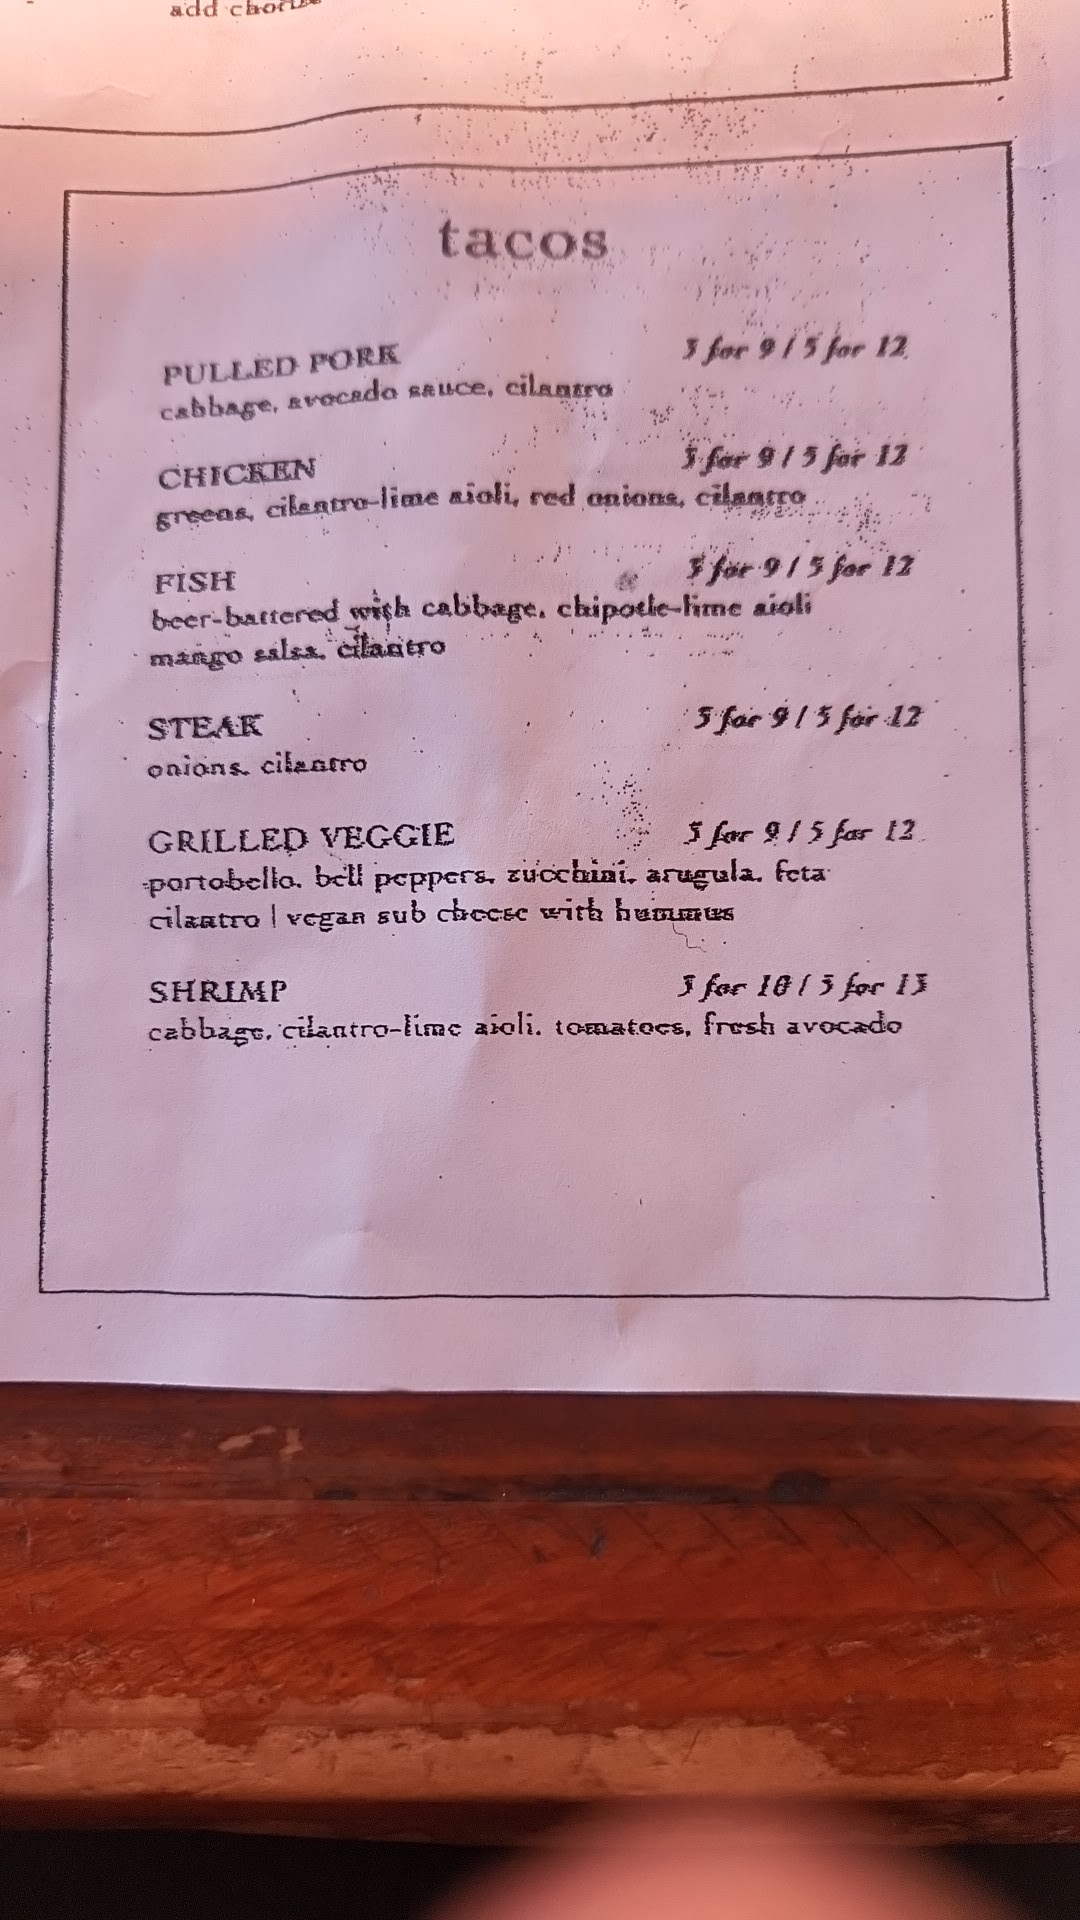 add chorizo
tacos
PULLED PORK 3 for 9 / 5 for 12
cabbage, avocado sauce, cilantro
CHICKEN 3 for 9 / 5 for 12
greens, cilantro-lime aioli, red onions, cilantro
FISH 3 for 9 / 5 for 12
beer-battered with cabbage, chipotle-lime aioli
mango salsa, cilantro
STEAK 3 for 9 / 5 for 12
onions, cilantro
GRILLED VEGGIE 3 for 9 / 5 for 12
portobello, bell peppers, zucchini, arugula, feta
cilantro | vegan sub cheese with hummus
SHRIMP 3 for 10 / 5 for 13
cabbage, cilantro-lime aioli, tomatoes, fresh avocado